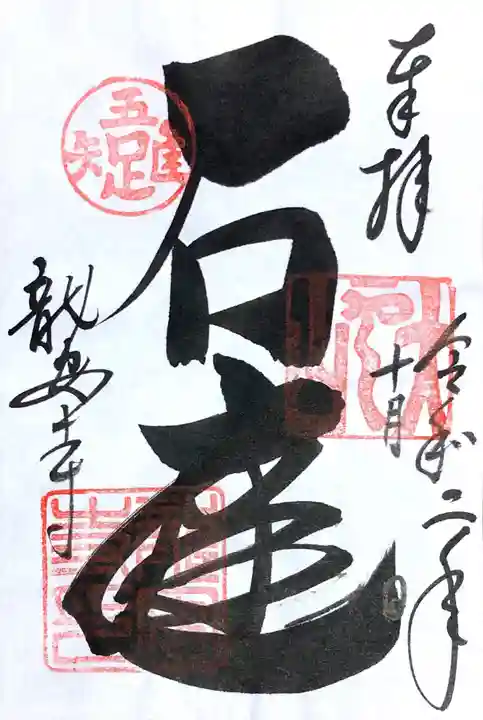 奉拝
令和二年
十月 日
石庭
吾唯足知
龍安寺